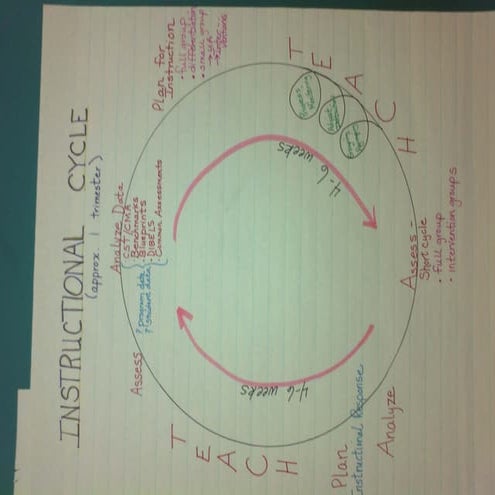 INSTRUCTIONAL CYCLE
(approx. 1 trimester)
Analyze Data
CST/CMA
Benchmarks
Blueprints
DIBELS
Common Assessments
? program data
? student data
Plan for
Instruction
• full group
• differentiation
• small group
TEACH
4-6 weeks
Assess -
Short cycle
• full group
• intervention groups
Analyze
Plan
Instructional Response
TEACH
4-6 weeks
Assess